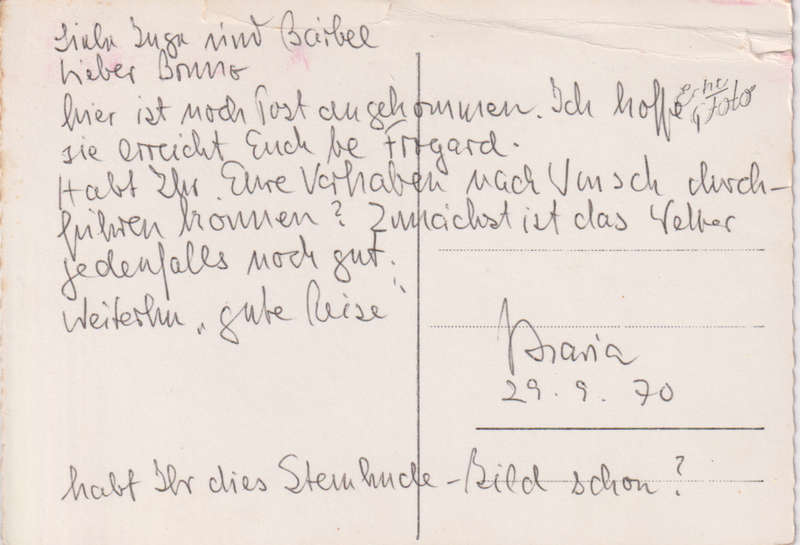 Liebe Inge und Bärbel
Lieber Bruno
hier ist noch Post angekommen. Ich hoffe,
echt Foto
sie erreicht Euch be Irmgard.
Habt Ihr Eure Vorhaben nach Wunsch durch-
führen können? Zunächst ist das Wetter
jedenfalls noch gut.
Weiterhin „gute Reise"
Maria
29. 9. 70
habt Ihr dies Steinhude-Bild schon?